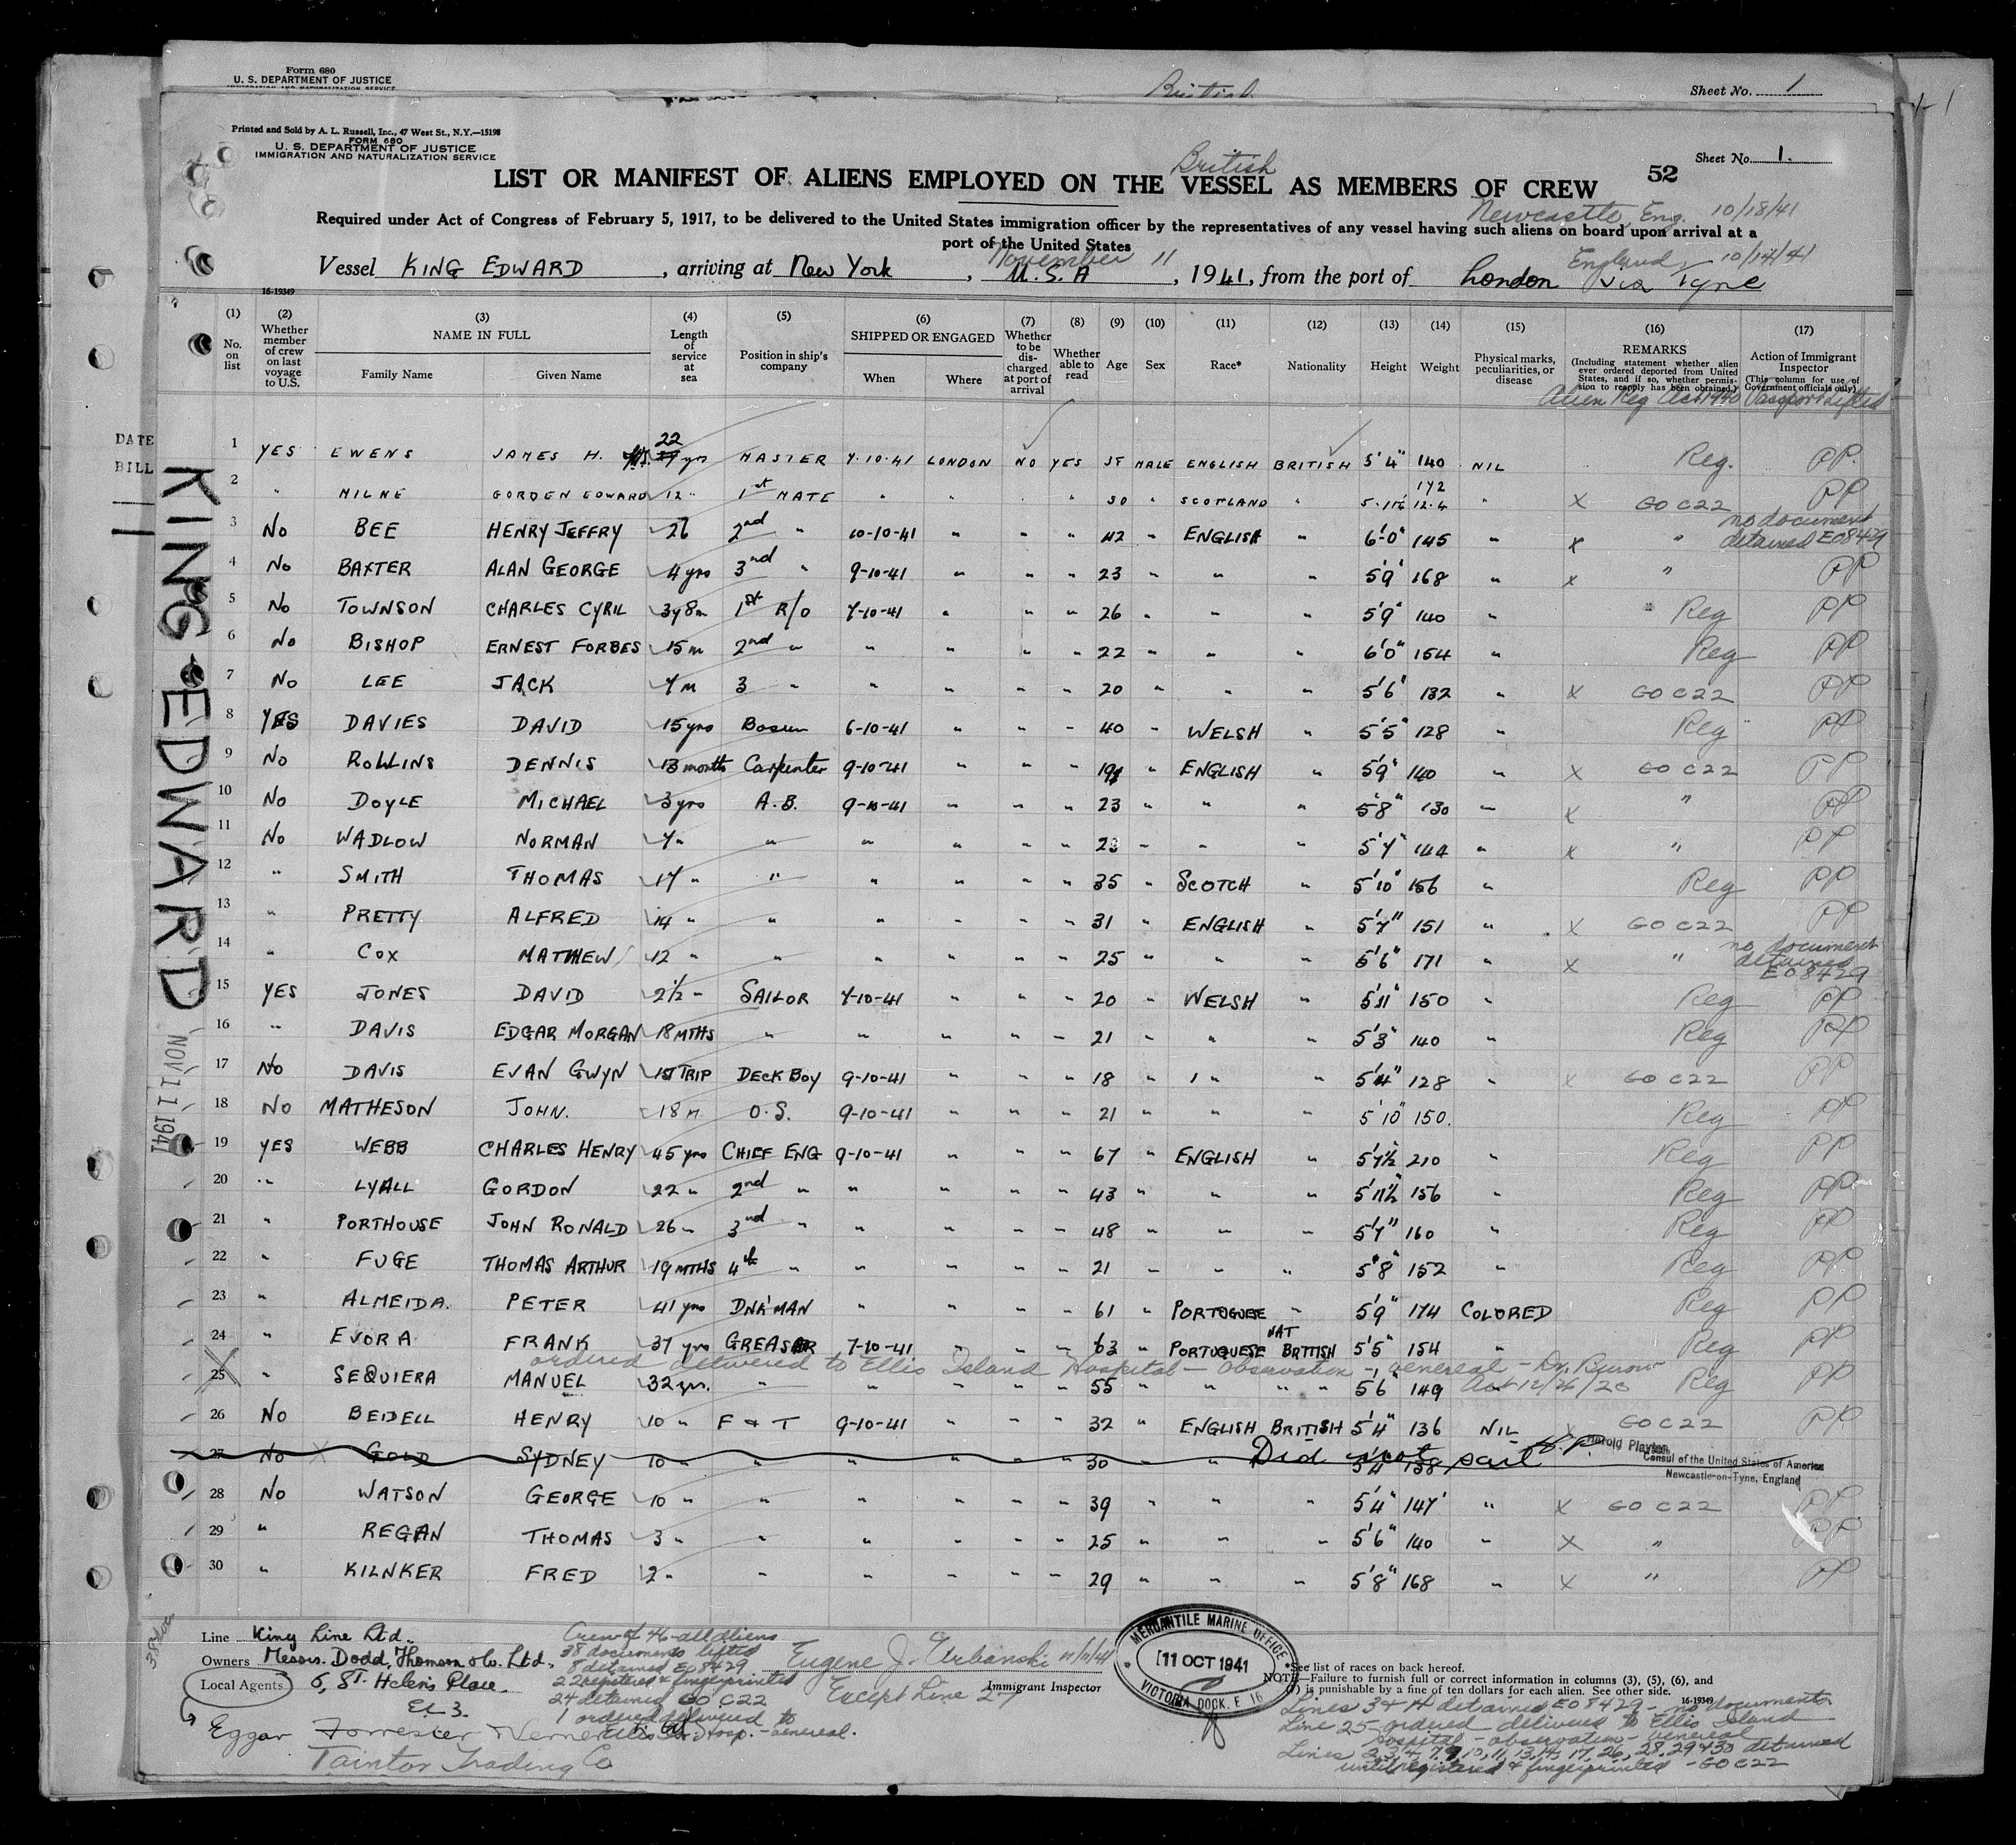 Form 680
U. S. DEPARTMENT OF JUSTICE
IMMIGRATION AND NATURALIZATION SERVICE
British
Sheet No. 1
Printed and Sold by A. L. Russell, Inc., 47 West St., N.Y.—15198
FORM 680
U. S. DEPARTMENT OF JUSTICE
IMMIGRATION AND NATURALIZATION SERVICE
Sheet No. 1.
British
52
LIST OR MANIFEST OF ALIENS EMPLOYED ON THE VESSEL AS MEMBERS OF CREW
Newcastle, Eng. 10/18/41
Required under Act of Congress of February 5, 1917, to be delivered to the United States immigration officer by the representatives of any vessel having such aliens on board upon arrival at a
port of the United States
November 11 England, 10/14/41
Vessel KING EDWARD, arriving at New York, U.S.A, 1941, from the port of London via Tyne
16-19349
(1) No. on list
(2) Whether member of crew on last voyage to U.S.
(3) NAME IN FULL Family Name Given Name
(4) Length of service at sea
(5) Position in ship's company
(6) SHIPPED OR ENGAGED When Where
(7) Whether to be discharged at port of arrival
(8) Whether able to read
(9) Age
(10) Sex
(11) Race*
(12) Nationality
(13) Height
(14) Weight
(15) Physical marks, peculiarities, or disease
(16) REMARKS (Including statement whether alien ever ordered deported from United States, and if so, whether permission to reapply has been obtained.)
(17) Action of Immigrant Inspector (This column for use of Government officials only)
Alien Reg Act 1940 Passport Lifted
DATE
BILL
KING EDWARD
NOV 11 1941
1 YES EWENS JAMES H. 22 yrs MASTER 7.10.41 LONDON NO YES MALE ENGLISH BRITISH 5'4" 140 NIL Reg. PP.
2 " MILNE GORDEN EDWARD 12 " 1st MATE " " " 30 " SCOTLAND " 172 12.4 " X GO C22 PP
3 No BEE HENRY JEFFRY 26 2nd " 10-10-41 " " " 42 " ENGLISH " 6'-0" 145 " X " no document detained EO8429
4 No BAXTER ALAN GEORGE 4 yrs 3rd " 9-10-41 " " " 23 " " " 5'9" 168 " X " PP
5 No TOWNSON CHARLES CYRIL 3y8m 1st R/O 7-10-41 " " " 26 " " " 5'9" 140 " Reg PP
6 No BISHOP ERNEST FORBES 15 m 2nd " " " " " 22 " " " 6'0" 154 " Reg PP
7 No LEE JACK 7 m 3 " " " " " 20 " " " 5'6" 132 " X GO C22 PP
8 YES DAVIES DAVID 15 yrs Bosun 6-10-41 " " " 40 " WELSH " 5'5" 128 " Reg PP
9 No ROLLINS DENNIS 13 months Carpenter 9-10-41 " " " 19 " ENGLISH " 5'9" 140 " X GO C22 PP
10 No DOYLE MICHAEL 3 yrs A.B. 9-10-41 " " " 23 " " " 5'8" 130 " X " PP
11 No WADLOW NORMAN 7 " " " " " " 23 " " " 5'7" 144 " X " PP
12 " SMITH THOMAS 17 " " " " " " 35 " SCOTCH " 5'10" 156 " Reg PP
13 " PRETTY ALFRED 14 " " " " " " 31 " ENGLISH " 5'7" 151 " X GO C22 PP
14 " COX MATTHEW 12 " " " " " " 25 " " " 5'6" 171 " X " no document detained EO8429
15 YES JONES DAVID 2½ " SAILOR 7-10-41 " " " 20 " WELSH " 5'11" 150 " Reg PP
16 " DAVIS EDGAR MORGAN 18 MTHS " " " " " 21 " " " 5'3" 140 " Reg PP
17 No DAVIS EVAN GWYN 1ST TRIP DECK BOY 9-10-41 " " " 18 " " " 5'4" 128 " X GO C22 PP
18 No MATHESON JOHN. 18 M O.S. 9-10-41 " " " 21 " " " 5'10" 150. Reg PP
19 YES WEBB CHARLES HENRY 45 yrs CHIEF ENG 9-10-41 " " " 67 " ENGLISH " 5'7½ 210 " Reg PP
20 " LYALL GORDON 22 " 2nd " " " " " 43 " " " 5'11½" 156 " Reg PP
21 " PORTHOUSE JOHN RONALD 26 " 3rd " " " " 48 " " " 5'7" 160 " Reg PP
22 " FUGE THOMAS ARTHUR 19 MTHS 4th " " " " " 21 " " " 5'8" 152 " Reg PP
23 " ALMEIDA. PETER 41 yrs DNK'MAN " " " " 61 " PORTUGUESE " 5'9" 174 COLORED Reg PP
24 " EVORA FRANK 37 yrs GREASER 7-10-41 " " " 63 " PORTUGUESE NAT BRITISH 5'5" 154 " Reg PP
ordered delivered to Ellis Island Hospital — observation — venereal — Act 12/26/20
25 " SEQUIERA MANUEL 32 yrs. " " " " " 55 " " " " 5'6" 149 Reg PP
26 No BEIDELL HENRY 10 " F & T 9-10-41 " " " 32 " ENGLISH BRITISH 5'4" 136 NIL X GO C22 PP
27 No X GOLD SYDNEY 10 " " " " " " 30 " " 5'4" 138 Did not sail H.P.
Harold Playter
Consul of the United States of America
Newcastle-on-Tyne, England
28 No WATSON GEORGE 10 " " " " " " 39 " " " 5'4" 147 " X GO C22 PP
29 " REGAN THOMAS 3 " " " " " " 25 " " " 5'6" 140 " X " PP
30 " KILNKER FRED 2 " " " " " " 29 " " " 5'8" 168 " X " PP
Line King Line Ltd.
Owners Messrs. Dodd, Thomson & Co. Ltd.,
Local Agents 6, St. Helen's Place. EC 3.
Eggar Forrester
Taintor Trading Co
Crew of 46 - all aliens
38 documents lifted
8 detained EO 8429
22 registered & fingerprinted
24 detained GO C22
1 ordered delivered to
Ellis Isl. Hosp. - venereal.
Eugene J. Urbanski 11/11/41
Immigrant Inspector
Except Line 27
MERCANTILE MARINE OFFICE
11 OCT 1941
VICTORIA DOCK. E 16
*See list of races on back hereof.
NOTE—Failure to furnish full or correct information in columns (3), (5), (6), and
(7) is punishable by a fine of ten dollars for each alien. See other side.
16-19349
Lines 3 & 14 detained EO 8429 - no documents
Line 25 - ordered delivered to Ellis Island
Hospital - observation - venereal
Lines 2, 3, 4, 7, 9, 10, 11, 13, 14, 17, 26, 28, 29 & 30 detained
until registered & fingerprinted - GO C22